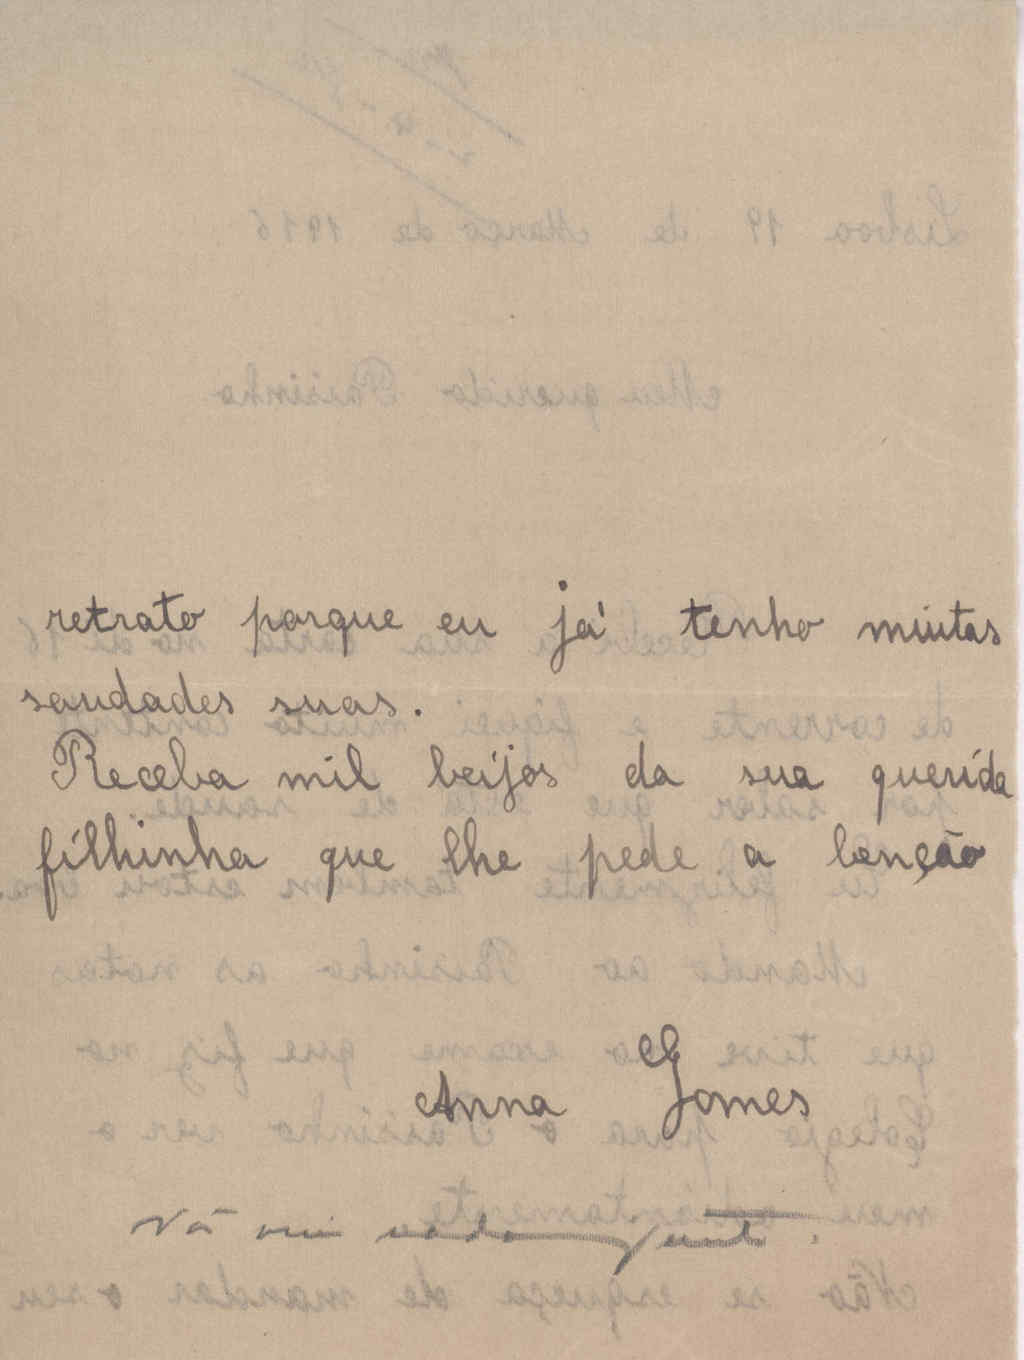 retrato porque eu já tenho muitas
saudades suas.
Receba mil beijos da sua querida
filhinha que lhe pede a benção
Anna Gomes
Não veiu nada junto.